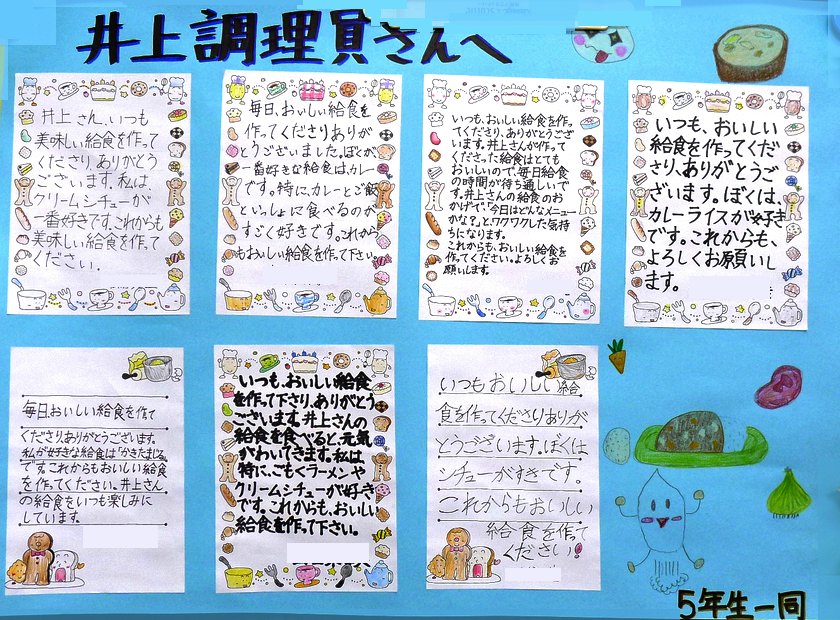 井上調理員さんへ
井上さん、いつも
美味しい給食を作って
くださり、ありがとう
ございます。私は、
クリームシチューが
一番好きです。これからも
美味しい給食を作って
ください。
毎日、おいしい給食を
作ってくださりありが
とうございました。ぼくが
一番好きな給食はカレー
です。特に、カレーとご飯
といっしょに食べるのが
すごく好きです。これから
もおいしい給食を作って下さい。
いつも、おいしい給食を作っ
てくださり、ありがとうござい
ます。井上さんが作って
くださった給食はとても
おいしいので、毎日給食
の時間が待ち遠しいで
す。井上さんの給食のお
かげで、「今日はどんなメニュー
かな?」と、ワクワクした気持
ちになります。
これからも、おいしい給食を
作ってください。よろしくお
願いします。
いつも、おいしい
給食を作ってくだ
さり、ありがとうご
ざいます。ぼくは、
カレーライスが好き
です。これからも、
よろしくお願いし
ます。
毎日、おいしい給食を作って
くださりありがとうございます。
私が好きな給食は「かきたまじる」
です。これからもおいしい給食
を作ってください。井上さん
の給食をいつも楽しみに
しています。
いつも、おいしい給食
を作って下さり、ありがとう
ございます。井上さんの
給食を食べると、元気
がわいてきます。私は
特に、ごもくラーメンや
クリームシチューが好き
です。これからも、おいしい
給食を作って下さい。
いつもおいしい給
食を作ってくださりありが
とうございます。ぼくは
シチューがすきです。
これからもおいしい
給食を作って
ください
5年生一同